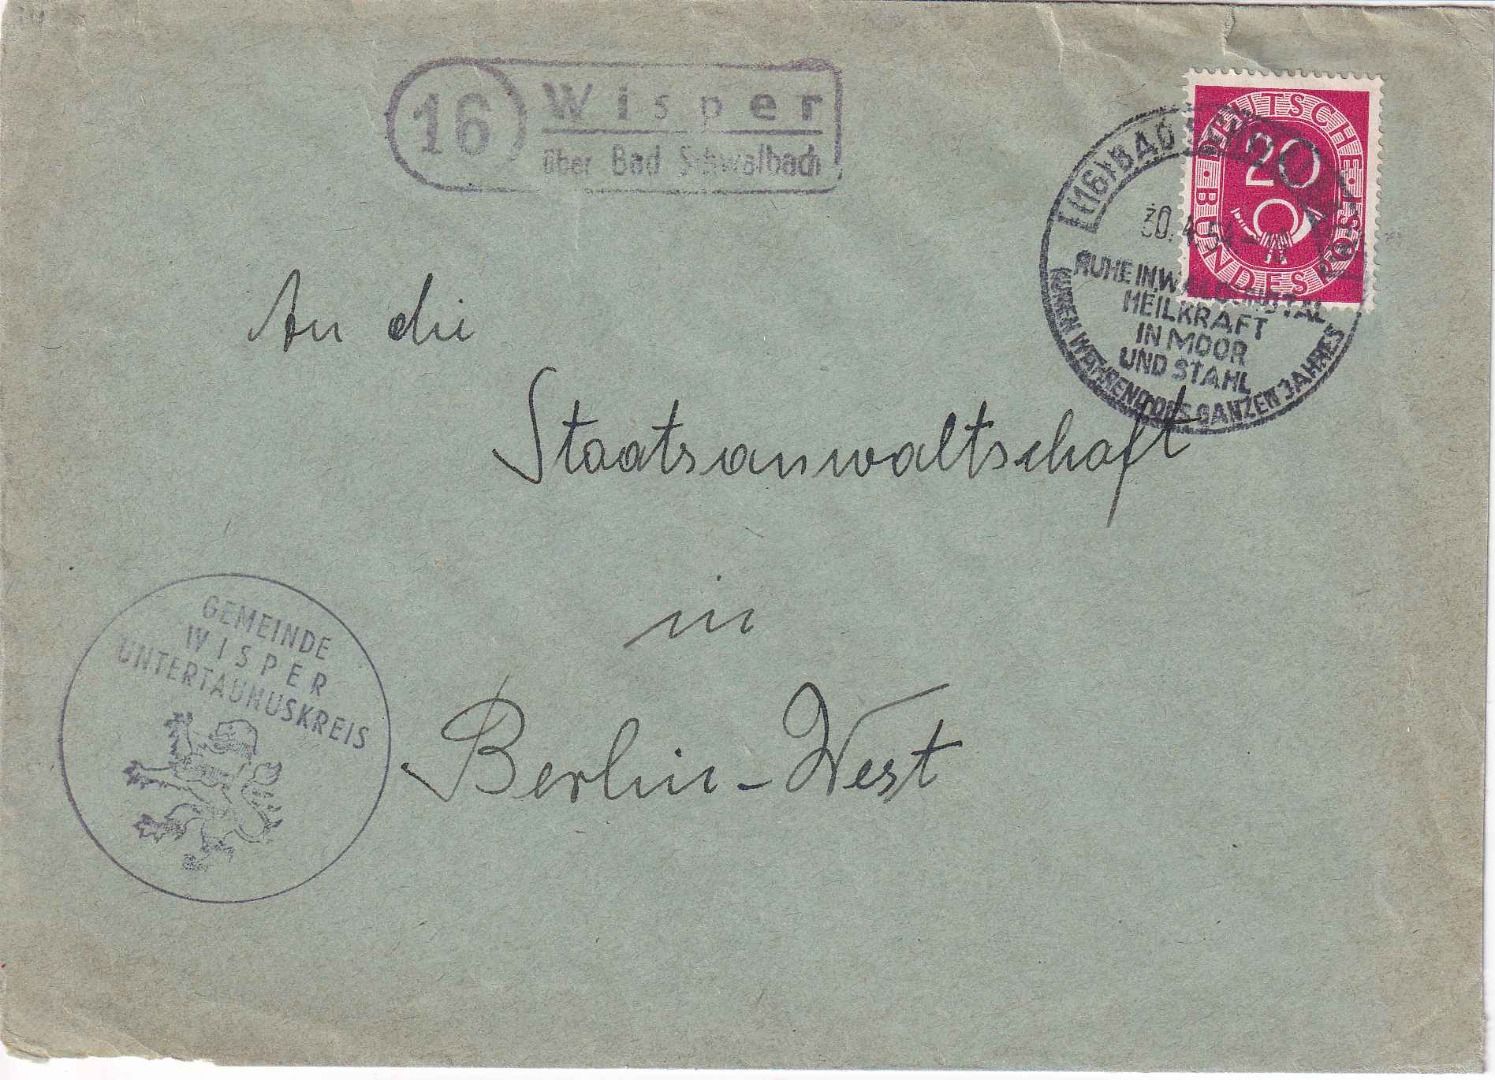 16
Wisper
über Bad Schwalbach
DEUTSCHE
20
BUNDESPOST
(16) BAD
30.4.54.-
RUHE IN WALD UND TAL
HEILKRAFT
IN MOOR
UND STAHL
KUREN WÄHREND DES GANZEN JAHRES
An die
Staatsanwaltschaft
in
Berlin-West
GEMEINDE
WISPER
UNTERTAUNUSKREIS